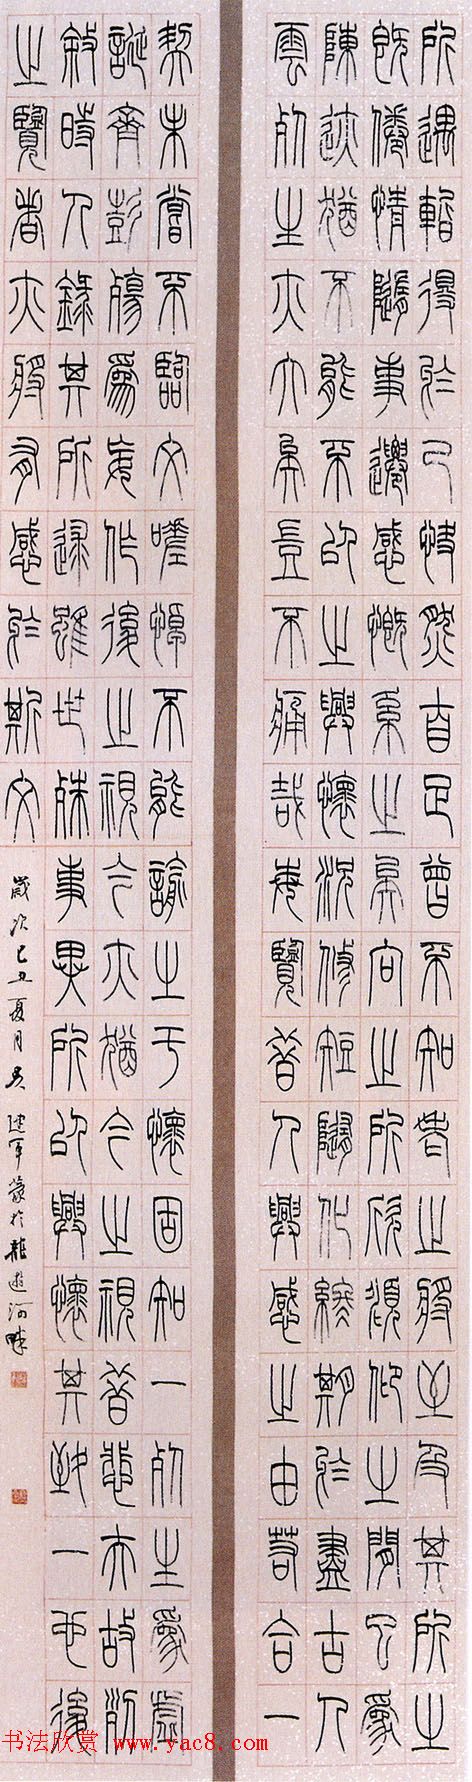 所遇暫得於己快然自足曾不知老之將至及其所之
既倦情隨事遷感慨系之矣向之所欣俯仰之間已為
陳迹猶不能不以之興懷況修短隨化終期於盡古人
雲死生亦大矣豈不痛哉每覽昔人興感之由若合一
契未嘗不臨文嗟悼不能諭之于懷固知一死生為虛
誕齊彭殤為妄作後之視今亦猶今之視昔悲夫故列
敘時人錄其所述雖世殊事異所以興懷其致一也後
之覽者亦將有感於斯文
歲次己丑夏月吳建軍篆於龍遊河畔
书法欣赏 www.yac8.com